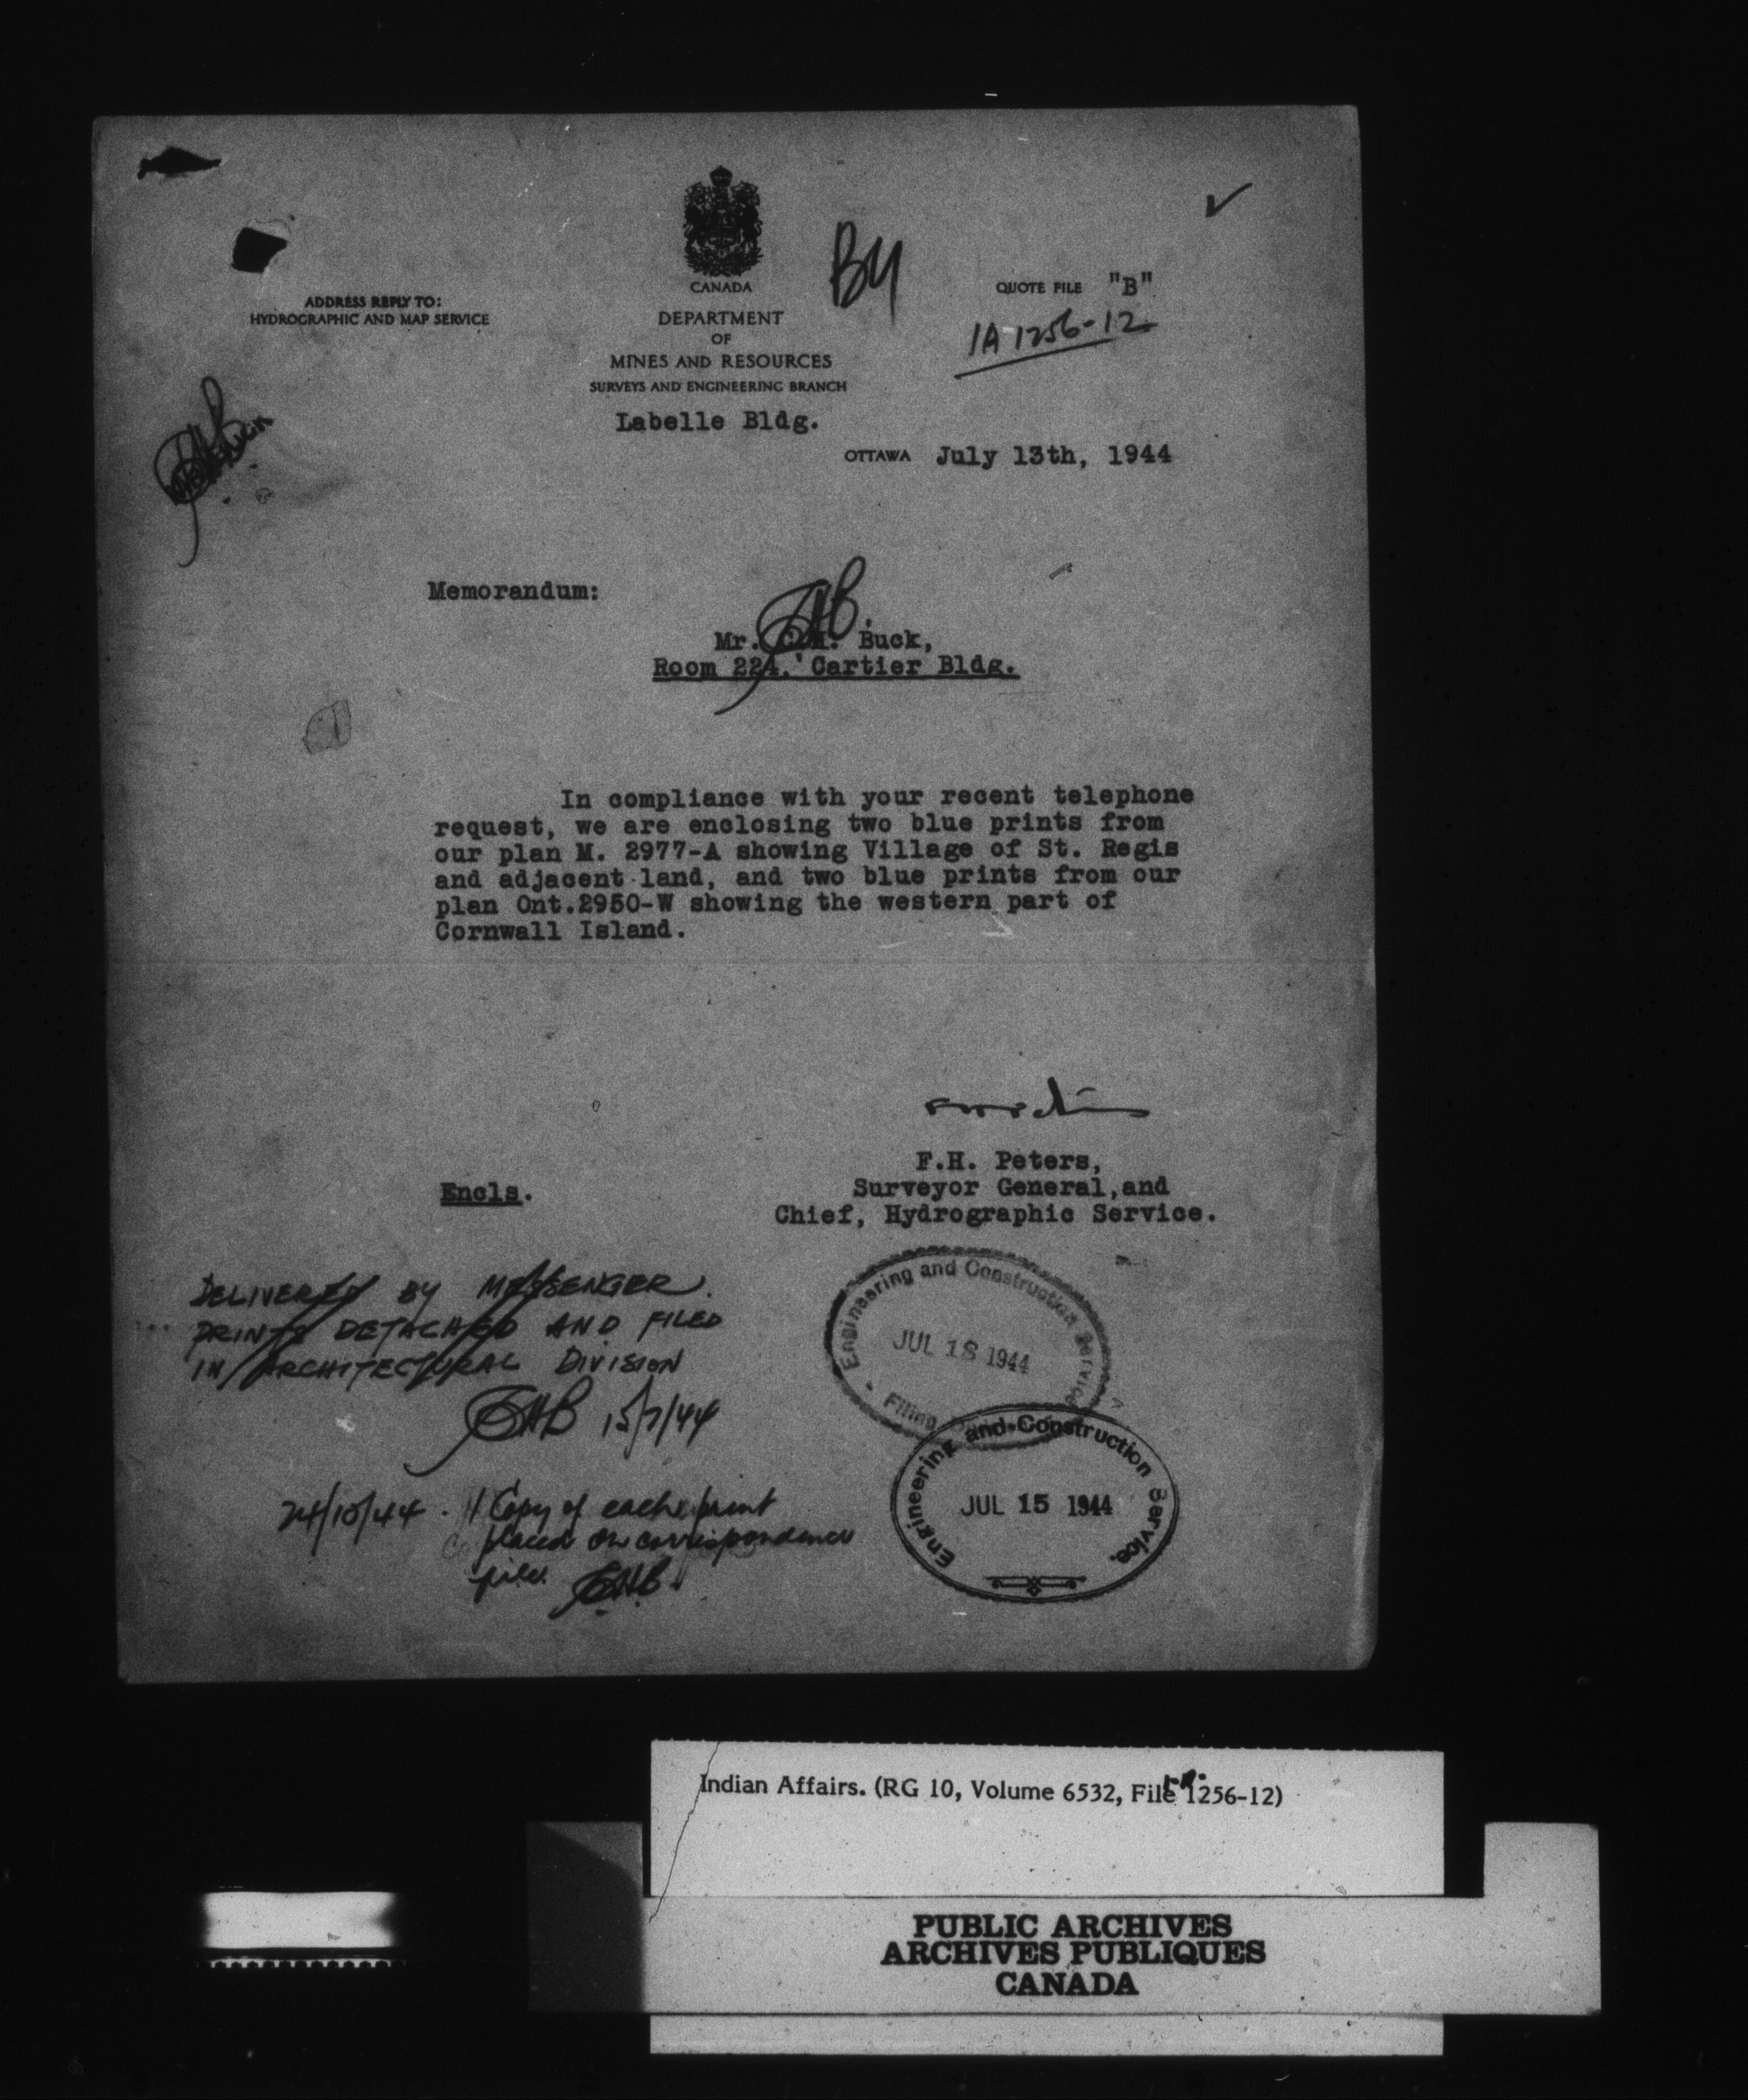 CANADA
ADDRESS REPLY TO:
HYDROGRAPHIC AND MAP SERVICE
DEPARTMENT
OF
MINES AND RESOURCES
SURVEYS AND ENGINEERING BRANCH
Labelle Bldg.
QUOTE FILE "B"
IA 1256-12
OTTAWA July 13th, 1944
Memorandum:
Mr. C.H. Buck,
Room 224, Cartier Bldg.
In compliance with your recent telephone
request, we are enclosing two blue prints from
our plan M. 2977-A showing Village of St. Regis
and adjacent land, and two blue prints from our
plan Ont.2950-W showing the western part of
Cornwall Island.
F.H. Peters,
Surveyor General,and
Chief, Hydrographic Service.
Encls.
DELIVERED BY MESSENGER.
PRINTS DETACHED AND FILED
IN ARCHITECTURAL DIVISION
CHB 15/7/44
24/10/44. 1 Copy of each print
placed on correspondence
file. CHB.
Engineering and Construction Service
JUL 18 1944
Filing
Engineering and Construction Service.
JUL 15 1944
Indian Affairs. (RG 10, Volume 6532, File 1256-12)
PUBLIC ARCHIVES
ARCHIVES PUBLIQUES
CANADA